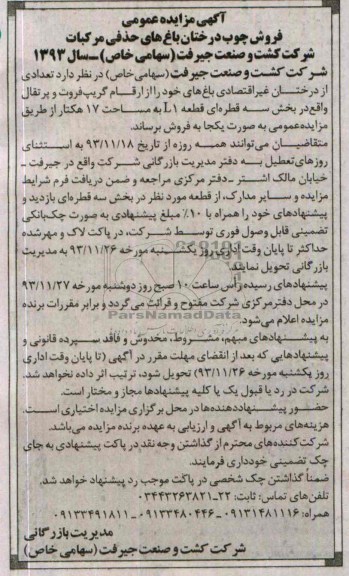 آگهی مزایده عمومی
فروش چوب درختان باغ های حذفی مرکبات
شرکت کشت و صنعت جیرفت (سهامی خاص) ـ سال ۱۳۹۳
شرکت کشت و صنعت جیرفت (سهامی خاص) در نظر دارد تعدادی
از درختان غیراقتصادی باغ های خود را از ارقام گریپ فروت و پرتقال
واقع در بخش سه قطره ای قطعه L1 به مساحت ۱۷ هکتار از طریق
مزایده عمومی به صورت یکجا به فروش برساند.
متقاضیان می توانند همه روزه از تاریخ ۹۳/۱۱/۱۸ به استثنای
روزهای تعطیل به دفتر مدیریت بازرگانی شرکت واقع در جیرفت ـ
خیابان مالک اشتر ـ دفتر مرکزی مراجعه و ضمن دریافت فرم شرایط
مزایده و سایر مدارک، از قطعه مورد نظر در بخش سه قطره ای بازدید و
پیشنهادهای خود را همراه با ۱۰٪ مبلغ پیشنهادی به صورت چک بانکی
تضمینی قابل وصول فوری توسط شرکت، در پاکت لاک و مهر شده
حداکثر تا پایان وقت اداری روز یکشنبه مورخه ۹۳/۱۱/۲۶ به مدیریت
بازرگانی تحویل نمایند.
پیشنهادهای رسیده رأس ساعت ۱۰ صبح روز دوشنبه مورخه ۹۳/۱۱/۲۷
در محل دفتر مرکزی شرکت مفتوح و قرائت می گردد و برابر مقررات برنده
مزایده اعلام می شود.
به پیشنهادهای مبهم، مشروط، مخدوش و فاقد سپرده قانونی و
پیشنهادهایی که بعد از انقضای مهلت مقرر در آگهی (تا پایان وقت اداری
روز یکشنبه مورخه ۹۳/۱۱/۲۶) تحویل شود، ترتیب اثر داده نخواهد شد.
شرکت در رد یا قبول یک یا کلیه پیشنهادها مجاز و مختار است.
حضور پیشنهاددهنده ها در محل برگزاری مزایده اختیاری است.
هزینه های مربوط به آگهی و ارزیابی به عهده برنده مزایده می باشد.
شرکت کننده های محترم از گذاشتن وجه نقد در پاکت پیشنهادی به جای
چک تضمینی خودداری فرمایند.
ضمناً گذاشتن چک شخصی در پاکت موجب رد پیشنهاد خواهد شد.
تلفن های تماس: ثابت: ۲۲-۰۳۴۴۳۲۶۳۸۲۱
همراه: ۰۹۱۳۱۴۸۱۱۱۶-۰۹۱۳۳۴۸۰۴۴۶-۰۹۱۳۳۴۹۱۸۱۱
مدیریت بازرگانی
شرکت کشت و صنعت جیرفت (سهامی خاص)